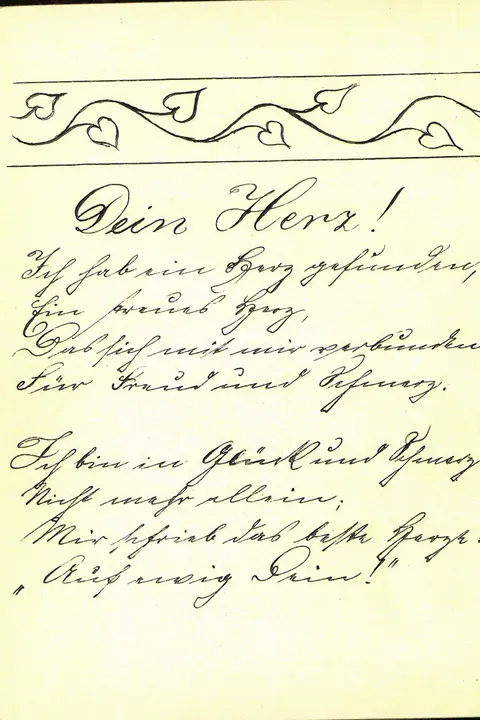 Dein Herz!
Ich hab ein Herz gefunden,
Ein treues Herz,
Das sich mit mir verbunden
Für Freud und Schmerz.
Ich bin in Glück und Schmerz
Nicht mehr allein;
Mir schrieb das beste Herze:
„Auf ewig Dein!"